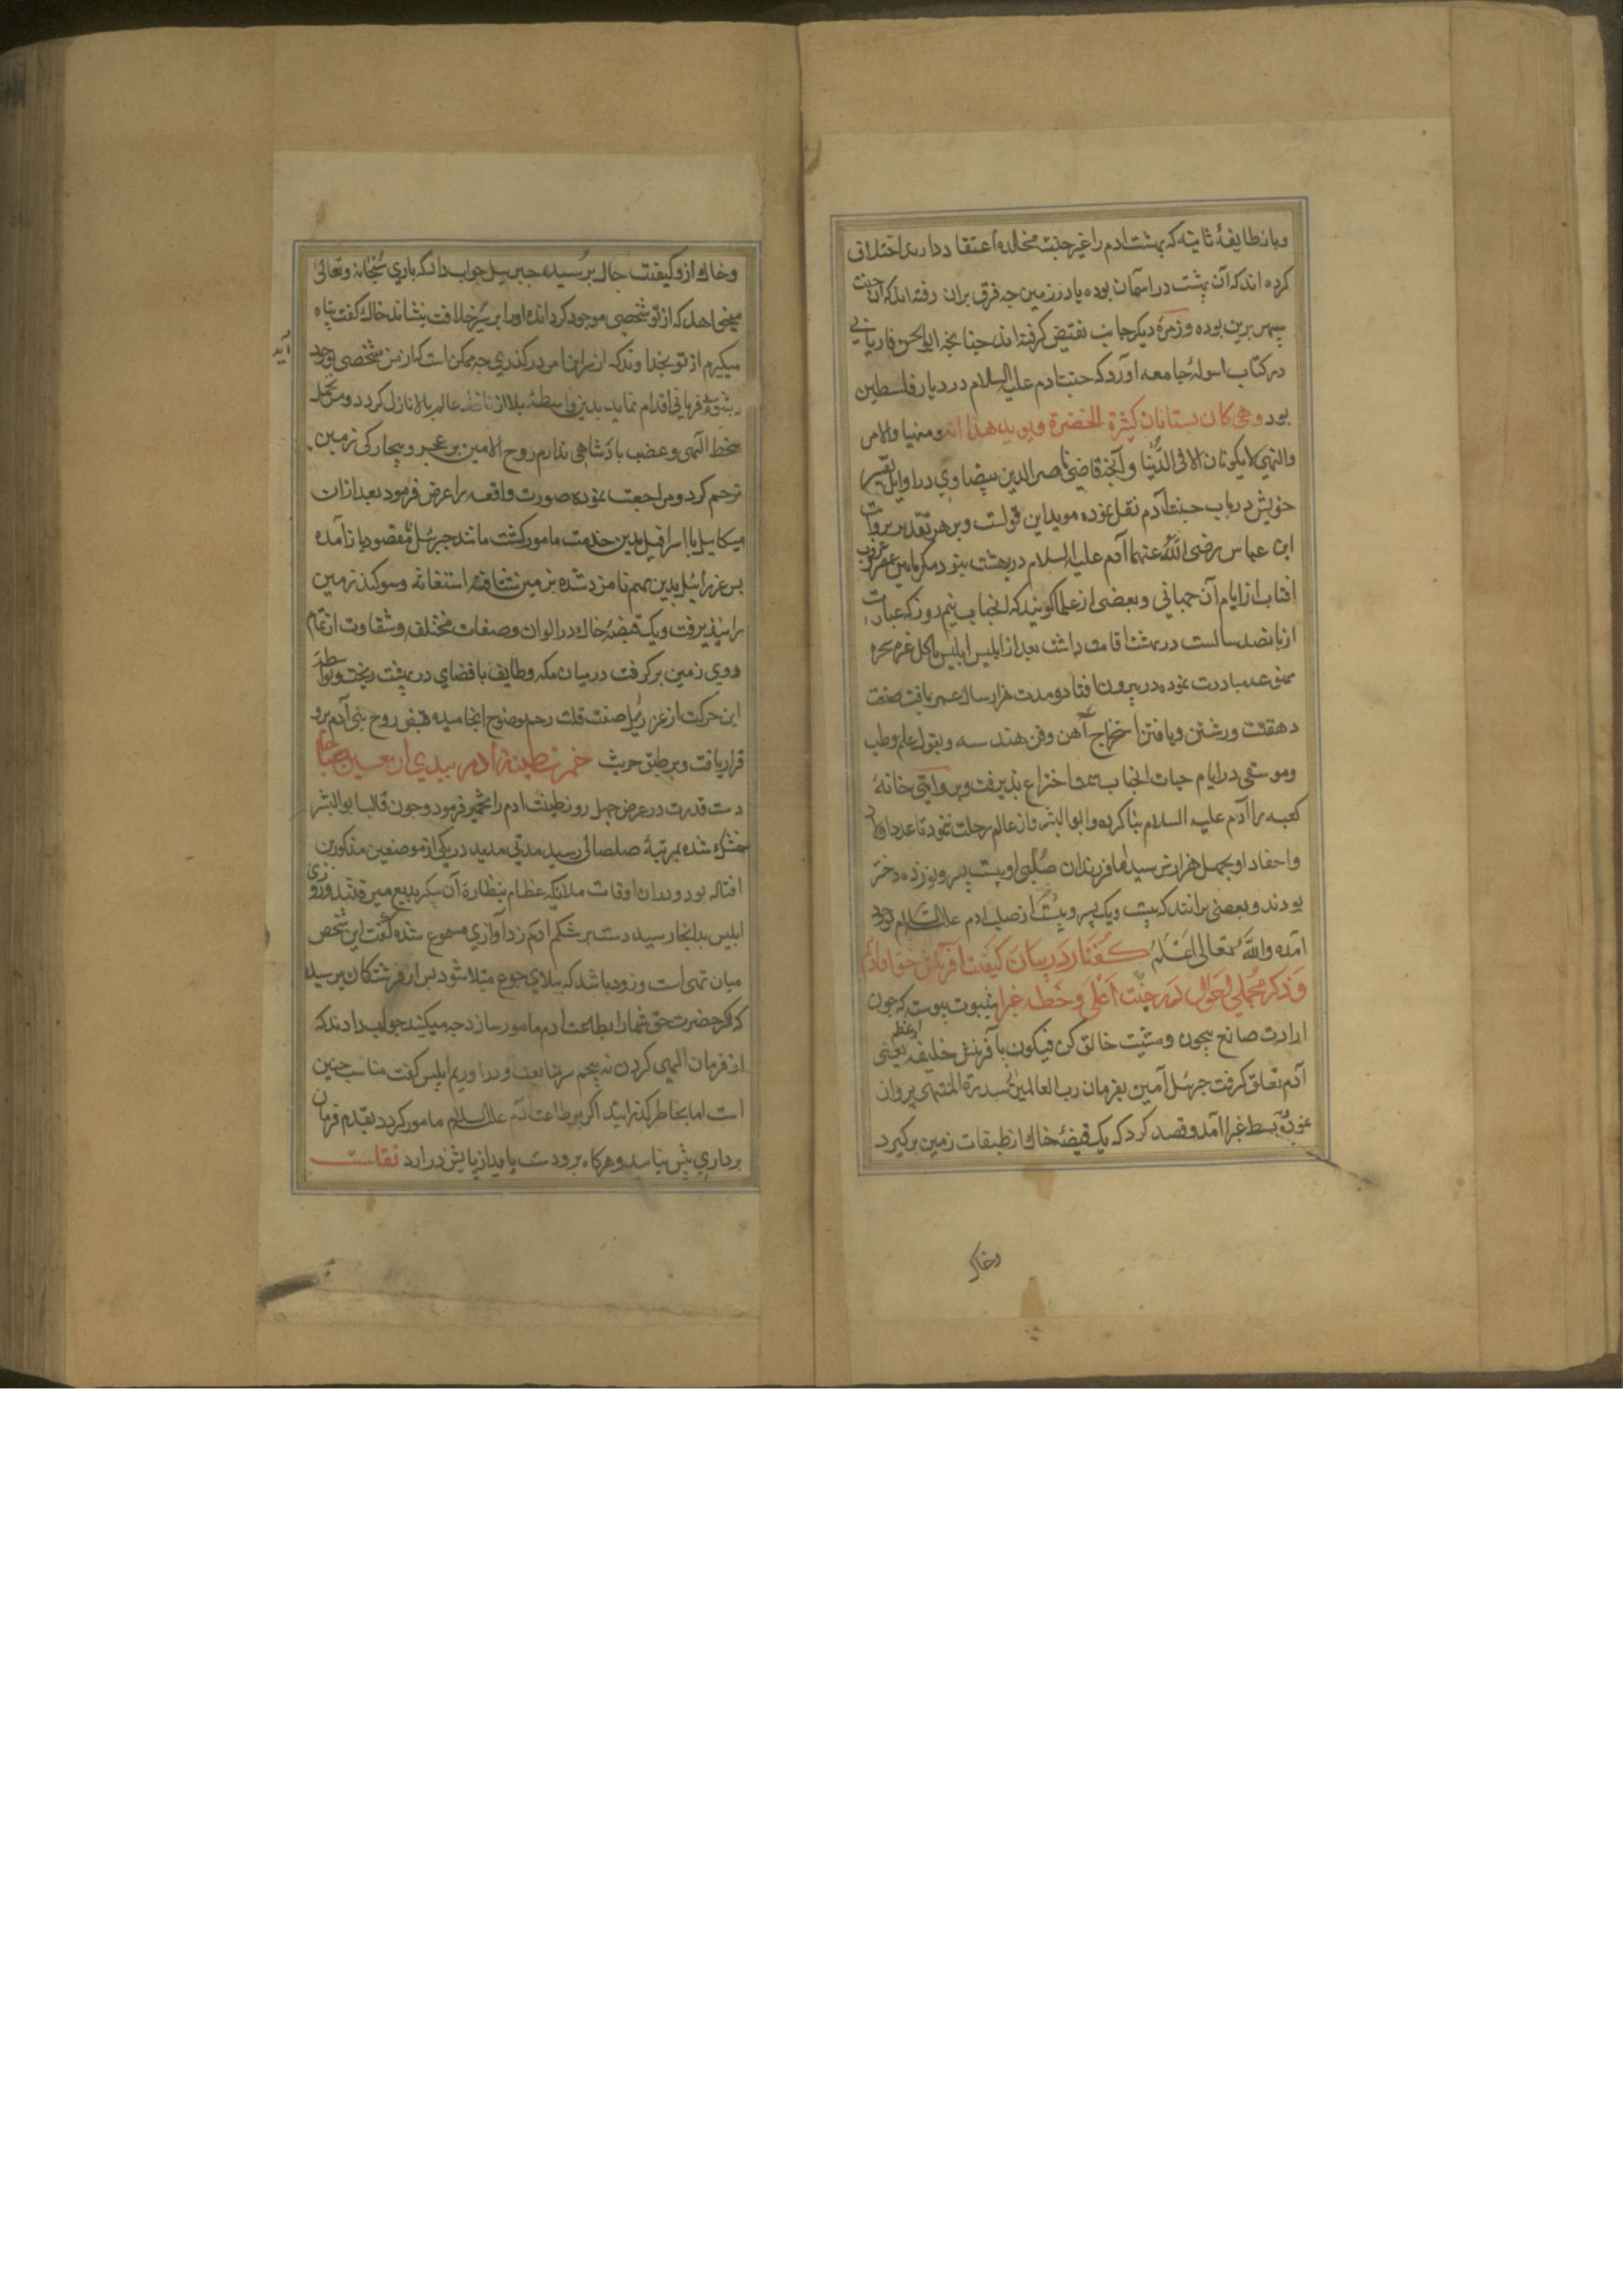 وبا نطایفهٔ ثانیه که بهشت ادم را غیر جنت مخلده اعتقاد دارند اختلاف
کرده اند که آن بهشت در اسمان بوده یا در زمین جه فرق بران رفته اند که آن جنت
سپهر برین بوده وزمرهٔ دیکر جانب نقیض کرفته اند جنانجه ابوالحسن فاریابی
در کتاب اسوله جامعه آورد که جنت ادم علیه السلام در دیار فلسطین
بود وهی کان بستانان کثرة الخضرة ویوید هذا انه ومنهیا والامر
والنهی لا یکونان الا فی الدنیا وآنجه قاضی ناصر الدین بیضاوی در اوایل تفسیر
خویش در باب جنت آدم نقل نموده موید این قولست وبر هر تقدیر بروایت
ابن عباس رضی الله عنهما آدم علیه السلام در بهشت نبود مکر مابین عصر وغروب
افتاب از ایام آن جهانی وبعضی از علما کویند که انجناب نیم روز که عبارت
از بانصد سالست در بهشت اقامت داشت بعد از ابلیس ابلیس باکل غره شجره
ممنوعه مبادرت نموده در بیرون افتاد ومدت هزار سال عمر یافت صنعت
دهقنت ورشتن وبافتن استخراج آهن وفن هندسه وبقول علم وطب
وموسقی در ایام حیات انجناب سمت اختراع بذیرفت وبروایتی خانهٔ
کعبه را آدم علیه السلام بنا کرده وابو البشر از عالم رحلت ننمود تا عدد اولاد
واحفاد او بجهل هزار تن رسید اما فرزندان صلبی او بیست بسر ونوزده دختر
بودند وبعضی برانند که بیست ویک بسر وبیست از صلب ادم علیه السلام بوجود
آمده والله تعالی اعلم کفتار در بیان کیفیت آفرینش حوا وآدم
وذکر مجملی احوال آدم در جنت اعلی وخطه غبرا بثبوت بیوسته که جون
ارادت صانع بیجون ومشیت خالق کن فیکون بآفرینش خلیفه اعظم یعنی
آدم تعلق کرفت جبرئیل آمین بفرمان رب العالمین از سدرة المنتهی بروان
نموده بسط غبرا آمد وقصد کرد که یک قبضهٔ خاک از طبقات زمین برکیرد
وخاک
وخاک از و کیفیت حال برسید جبرییل جواب داد که باری سبحانه وتعالی
میخواهد که از تو شخصی موجود کرداند واورا بر سریر خلافت بنشاند خاک کفت بناه
میکیرم از تو بخداوند که از سر این امر درکذری جه ممکن است که از من شخصی بوجود
آید
بشود فرمانی اقدام نماید بدین واسطه بلا از عالم بالا نازل کردد ومن تحمل
سخط الهی وغضب بادشاهی ندارم روح الامین بر عجز وبیجارکی زمین
ترحم کرد ومراجعت نموده صورت واقعه را عرض فرمود بعد ازان
میکاییل با اسرافیل بدین خدمت مامور کشت مانند جبرئیل بی مقصود باز آمده
بس عزرائیل بدین مهم نامزد شده بزمین شتافته استغاثه وسوکند زمین
را نبذیرفت ویک قبضهٔ خاک در الوان وصفات مختلف ومتفاوت از تمام
روی زمین برکرفت درمیان مکه وطایف بافضای دربیغت ریخت وبواسطه
این حرکت از عزرئیل صفت قلت رحم بوضوح انجامیده قبض روح بنی آدم برو
قرار یافت وبرطبق حدیث خمرت طینة آدم بیدی اربعین صباحا
دست قدرت در عرض جهل روز طینت ادم را تخمیر فرمود وجون قالب ابو البشر
خشک شده بمرتبهٔ صلصالی رسید مدتی مدید در یکی از موضعین مذکورین
افتاده بود ودران اوقات ملائیکه عظام بنظارهٔ آن بیکر بدیع میرفتند وروزی
ابلیس بدانجا رسیده دست بر شکم ادم زد آوازی مسموع شده کفت این شخص
میان تهی است وزود باشد که ببلای جوع مبتلا شود بس از فرشتکان برسید
که اکر حضرت حق شمارا بطاعت ادم مامور سازد جه میکنید جواب دادند که
از فرمان الهی کردن نه بیجیم سر متابعت فرود اوریم ابلیس کفت مناسب جنین
است اما بخاطر کذرانید اکر بر طاعت ادم علیه السلام مامور کردد بقدم فرمان
برداری بیش نیاید وهرکاه برو دست یابد از بایش درارد نقلست